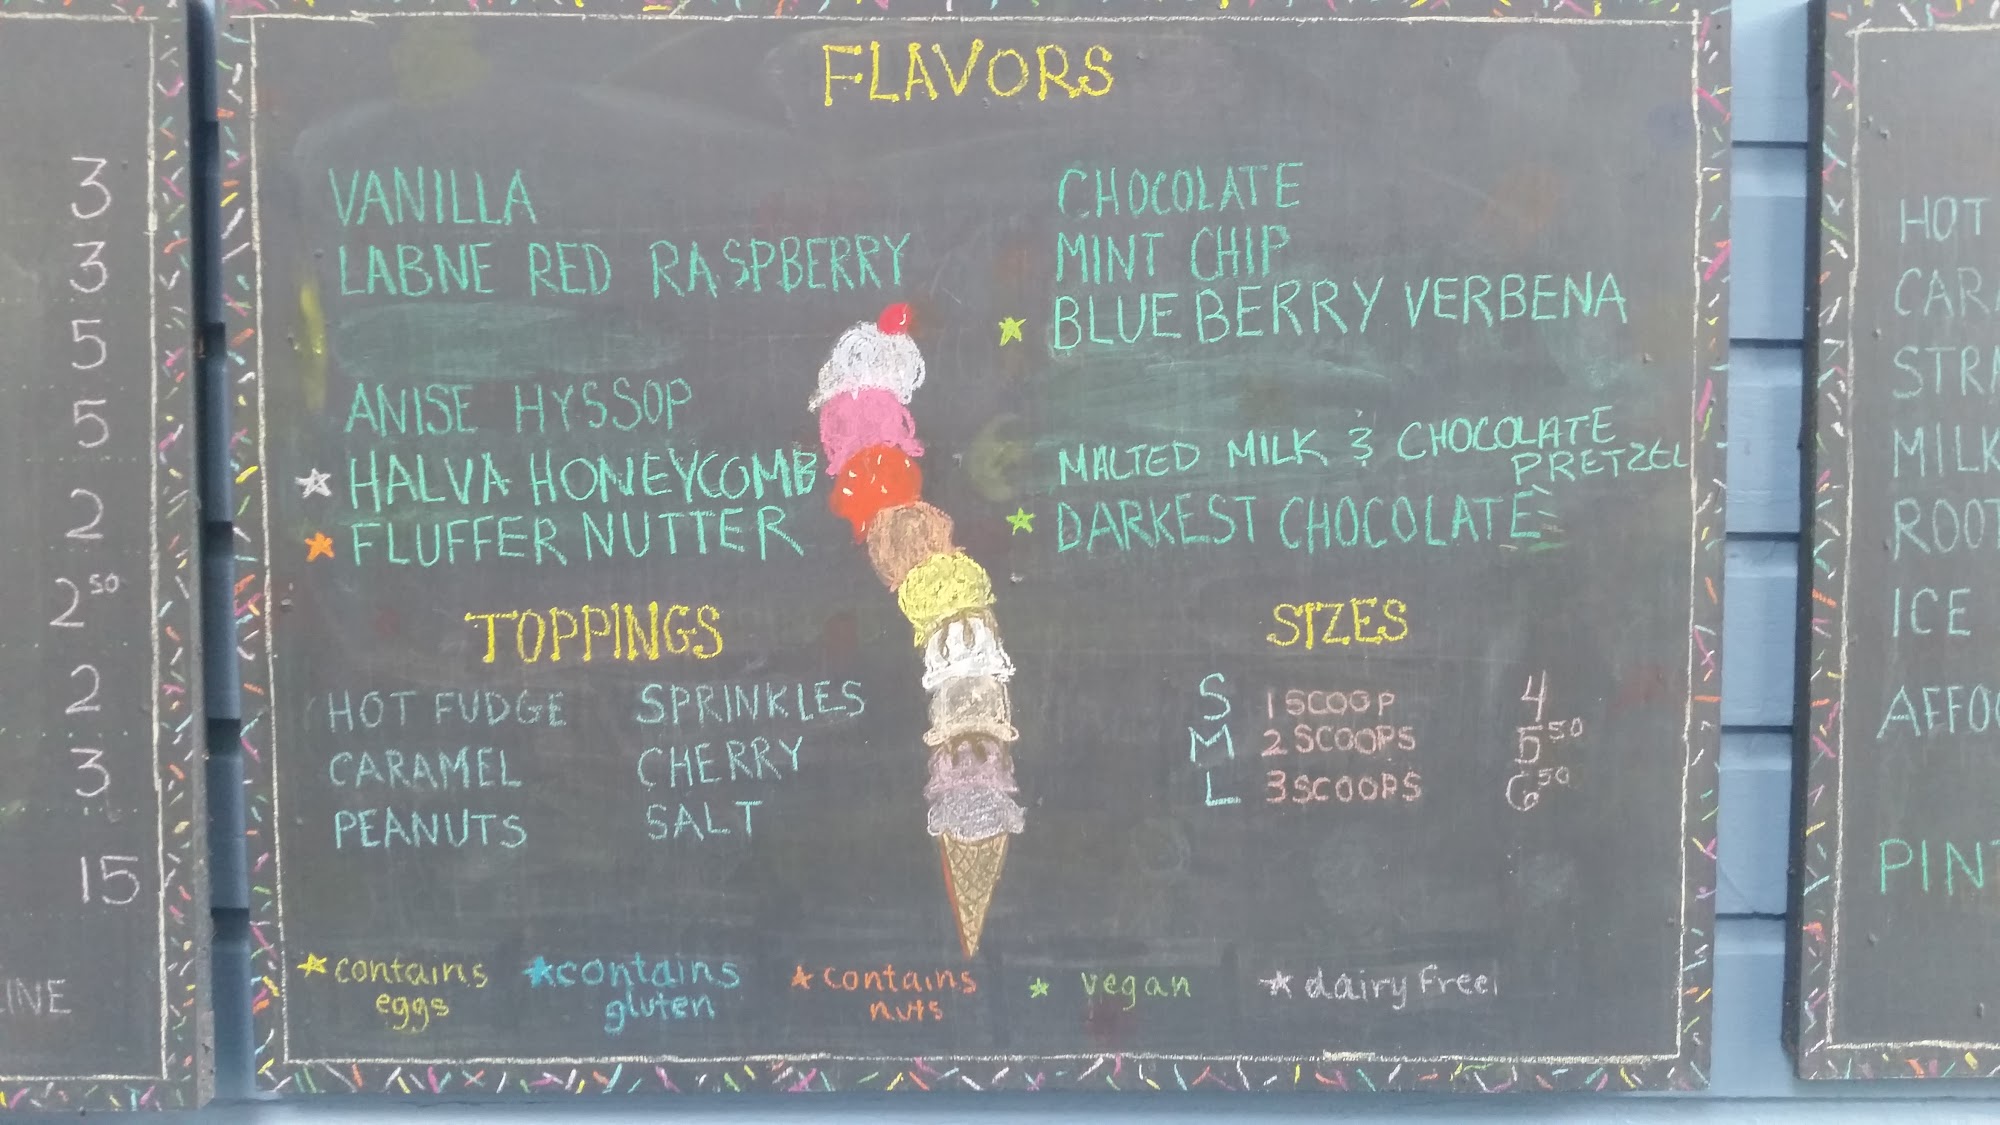 3
3
5
5
2
2 50
2
3
15
LINE
FLAVORS
VANILLA
LABNE RED RASPBERRY
ANISE HYSSOP
HALVA HONEYCOMB
FLUFFER NUTTER
CHOCOLATE
MINT CHIP
BLUEBERRY VERBENA
MALTED MILK & CHOCOLATE
PRETZEL
DARKEST CHOCOLATE
TOPPINGS
HOT FUDGE SPRINKLES
CARAMEL CHERRY
PEANUTS SALT
SIZES
S 1 SCOOP 4
M 2 SCOOPS 5 50
L 3 SCOOPS 6 50
contains
eggs
contains
gluten
contains
nuts
vegan
dairy free!
HOT
CAR
STRA
MILK
ROOT
ICE
AFFO
PINT